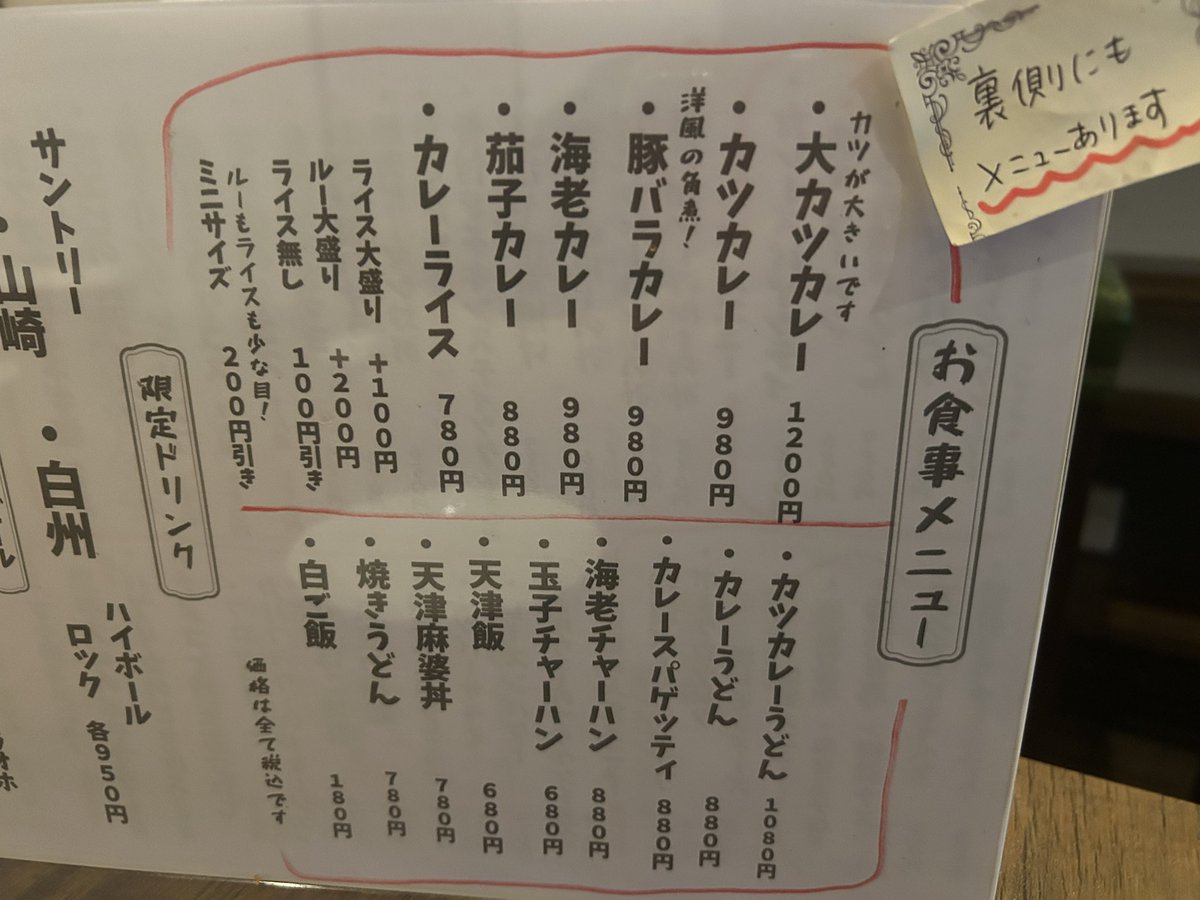 裏側にも
メニューあります
お食事メニュー
カツが大きいです
・大カツカレー 1200円
・カツカレー 980円
洋風の角煮!
・豚バラカレー 980円
・海老カレー 980円
・茄子カレー 880円
・カレーライス 780円
ライス大盛り +100円
ルー大盛り +200円
ライス無し 100円引き
ルーもライスも少な目!
ミニサイズ 200円引き
・カツカレーうどん 1080円
・カレーうどん 880円
・カレースパゲッティ 880円
・海老チャーハン 880円
・玉子チャーハン 680円
・天津飯 680円
・天津麻婆丼 780円
・焼きうどん 780円
・白ご飯 180円
価格は全て税込です
限定ドリンク
サントリー
・山崎 ・白州
ハイボール
ロック 各950円